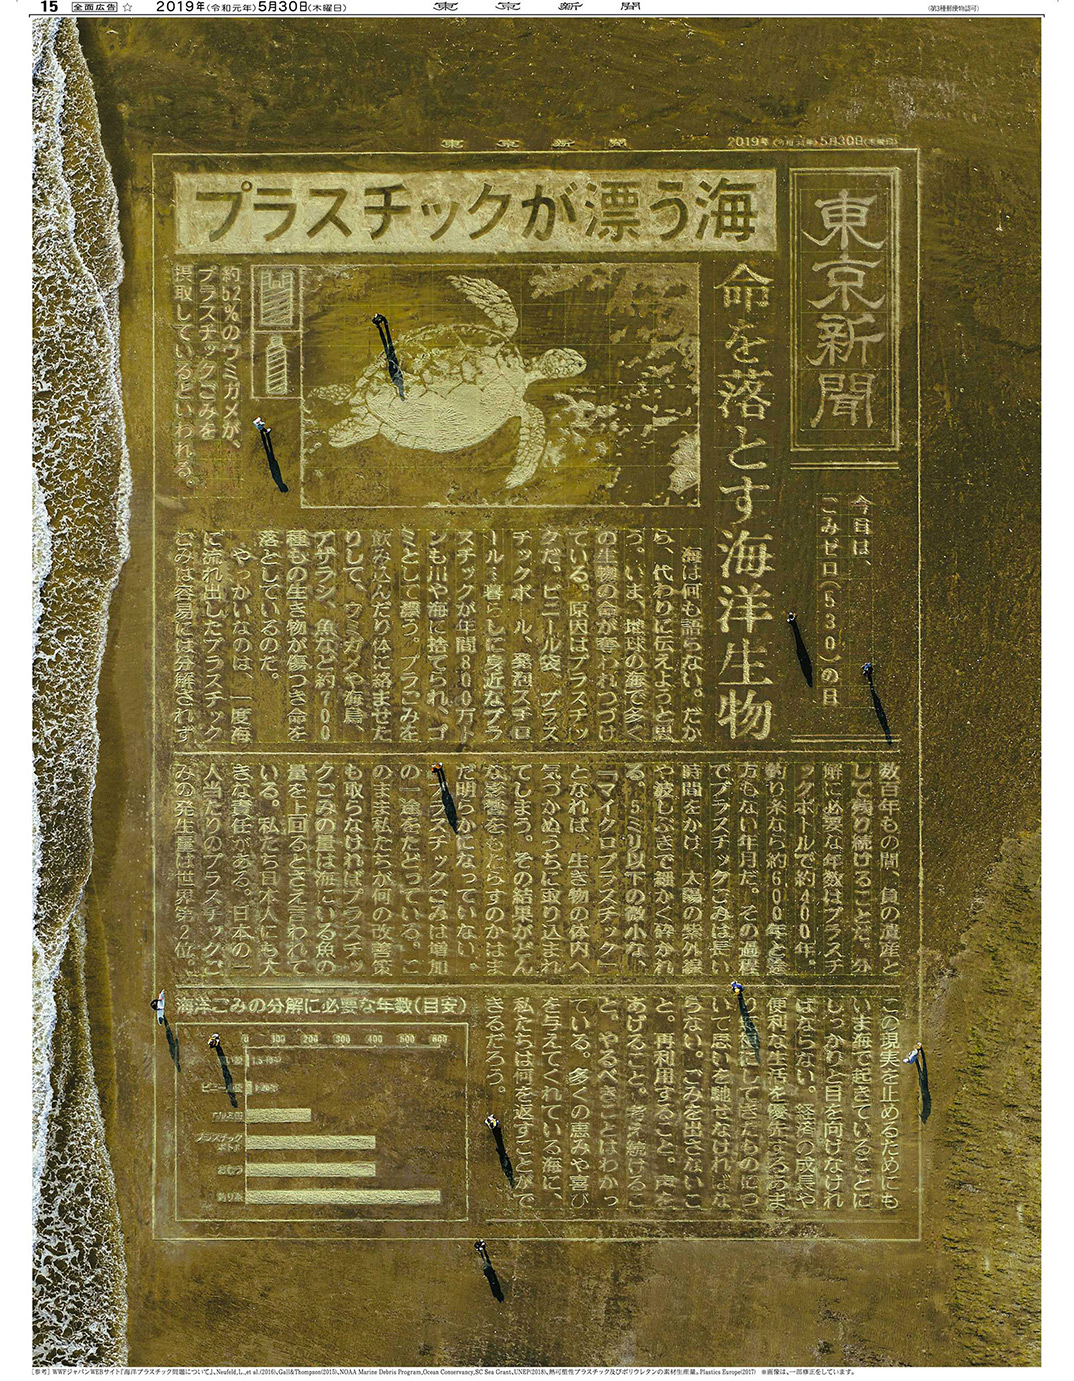 15 全面広告 ☆ 2019年(令和元年)5月30日(木曜日) 東京新聞 (第3種郵便物認可)
東京新聞 2019年(令和元年)5月30日(木曜日)
東京新聞
プラスチックが漂う海
命を落とす海洋生物
今日は、
ごみゼロ(530)の日
約52%のウミガメが、
プラスチックごみを
摂取しているといわれる。
海は何も語らない。だか
ら、代わりに伝えようと思
う。いま、地球の海で多く
の生物の命が奪われつづけ
ている。原因はプラスチッ
クだ。ビニール袋、プラス
チックボトル、発泡スチロ
ール…暮らしに身近なプラ
スチックが年間800万ト
ンも川や海に捨てられ、ゴ
ミとして漂う。プラごみを
飲み込んだり体に絡ませた
りして、ウミガメや海鳥、
アザラシ、魚など約700
種もの生き物が傷つき命を
落としているのだ。
やっかいなのは、一度海
に流れ出したプラスチック
ごみは容易には分解されず
数百年もの間、負の遺産と
して残り続けることだ。分
解に必要な年数はプラスチ
ックボトルで約400年。
釣り糸なら約600年と途
方もない年月だ。その過程
でプラスチックごみは長い
時間をかけ、太陽の紫外線
や波しぶきで細かく砕かれ
る。5ミリ以下の微小な、
「マイクロプラスチック」
となれば、生き物の体内へ
気づかぬうちに取り込まれ
てしまう。その結果がどん
な影響をもたらすのかはま
だ明らかになっていない。
プラスチックごみは増加
の一途をたどっている。こ
のまま私たちが何の改善策
も取らなければプラスチッ
クごみの量は海にいる魚の
量を上回るとさえ言われて
いる。私たち日本人にも大
きな責任がある。日本の一
人当たりのプラスチックご
みの発生量は世界第2位。
この現実を止めるためにも
いま海で起きていることに
しっかりと目を向けなけれ
ばならない。経済の成長や
便利な生活を優先するあま
り犠牲にしてきたものにつ
いて思いを馳せなければな
らない。ごみを出さないこ
と。再利用すること。声を
あげること。考え続けるこ
と。やるべきことはわかっ
ている。多くの恵みや喜び
を与えてくれている海に、
私たちは何を返すことがで
きるだろう。
海洋ごみの分解に必要な年数(目安)
0 100 200 300 400 500 600
プラスチック
ボトル
おむつ
釣り糸
[参考] WWFジャパンWEBサイト『海洋プラスチック問題について』、Neufeld,L.,et al.(2016)、Gall&Thompson(2015)、NOAA Marine Debris Program、Ocean Conservancy、SC Sea Grant、UNEP(2018)、熱可塑性プラスチック及びポリウレタンの素材生産量。Plastics Europe(2017) ※画像は、一部修正をしています。